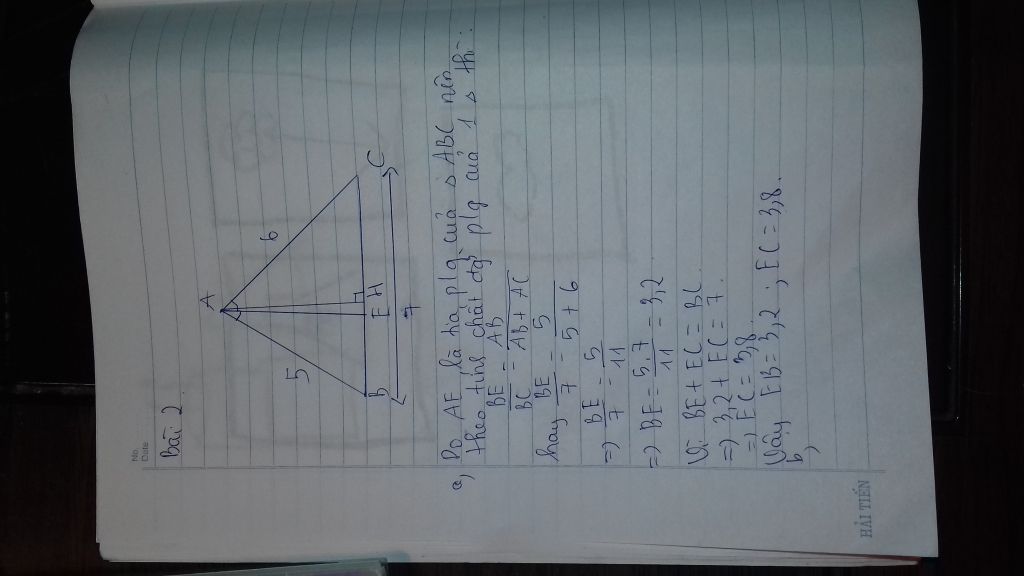 No.
Date
Bài 2
A
5
6
B
E
H
C
7
a) Do AE là tia plg của △ ABC nên
theo tính chất đg plg của 1 △ thì:
BE/BC = AB/(AB + AC)
hay BE/7 = 5/(5 + 6)
=> BE/7 = 5/11
=> BE = 5.7/11 = 3,2
Vì BE + EC = BC
=> 3,2 + EC = 7.
=> EC = 3,8
Vậy EB = 3,2 ; EC = 3,8.
b)
HẢI TIẾN